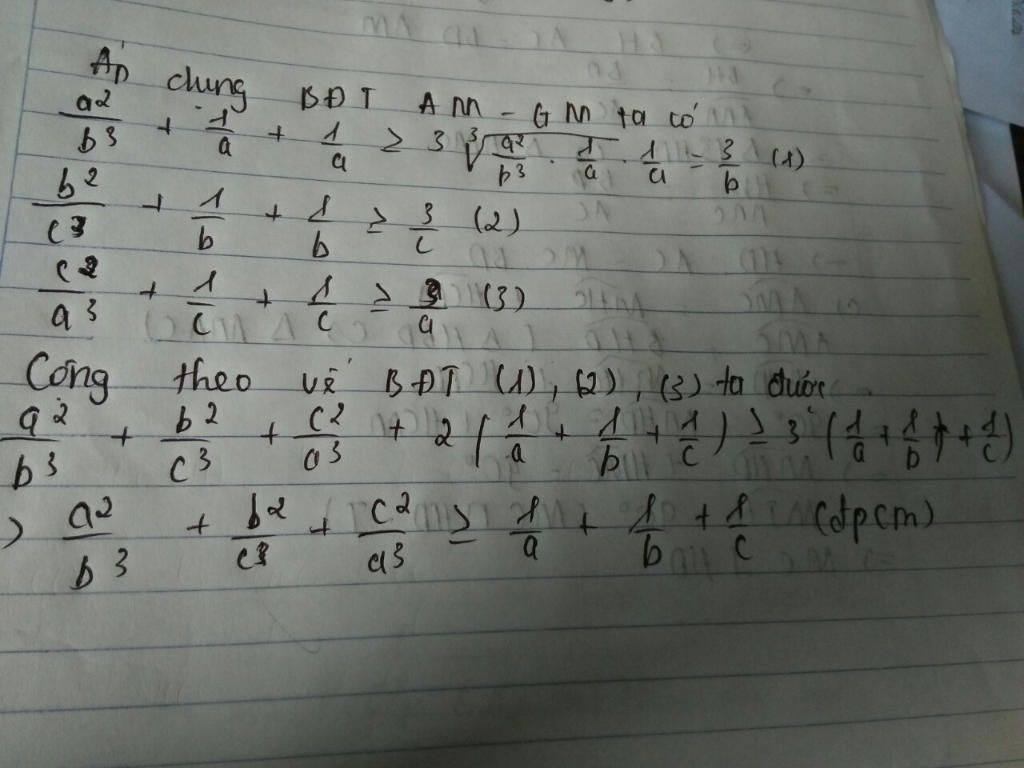 Áp dụng BĐT AM - GM ta có
a²/b³ + 1/a + 1/a ≥ 3 ∛(a²/b³ · 1/a · 1/a) = 3/b (1)
b²/c³ + 1/b + 1/b ≥ 3/c (2)
c²/a³ + 1/c + 1/c ≥ 3/a (3)
Cộng theo vế BĐT (1), (2), (3) ta được
a²/b³ + b²/c³ + c²/a³ + 2 (1/a + 1/b + 1/c) ≥ 3 (1/a + 1/b + 1/c)
) a²/b³ + b²/c³ + c²/a³ ≥ 1/a + 1/b + 1/c (đpcm)